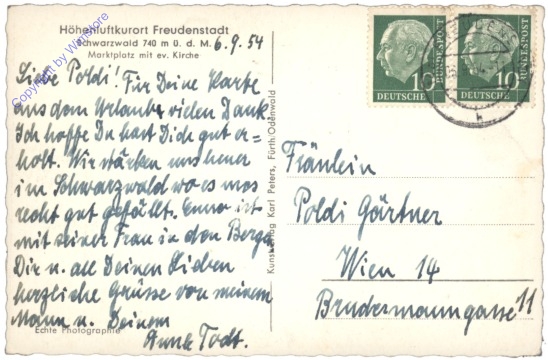 Höhenluftkurort Freudenstadt
Schwarzwald 740 m ü. d. M.
Marktplatz mit ev. Kirche
6.9.54
Liebe Poldi! Für Deine Karte
aus dem Urlaub vielen Dank.
Ich hoffe Du hast Dich gut er=
holt. Wir stärken uns heuer
im Schwarzwald wo es uns
recht gut gefällt. ist
mit seiner Frau in den Berge
Dir u. all Deinen Lieben
herzliche Grüsse von meinem
Mann u. Deinem
Todt.
Echte Photographie
Kunstverlag Karl Peters, Fürth/Odenwald
10
DEUTSCHE
BUNDESPOST
10
DEUTSCHE
BUNDESPOST
h
Fräulein
Poldi Gärtner
Wien 14
Brudermanngasse 11
Copyright by Wipfstore